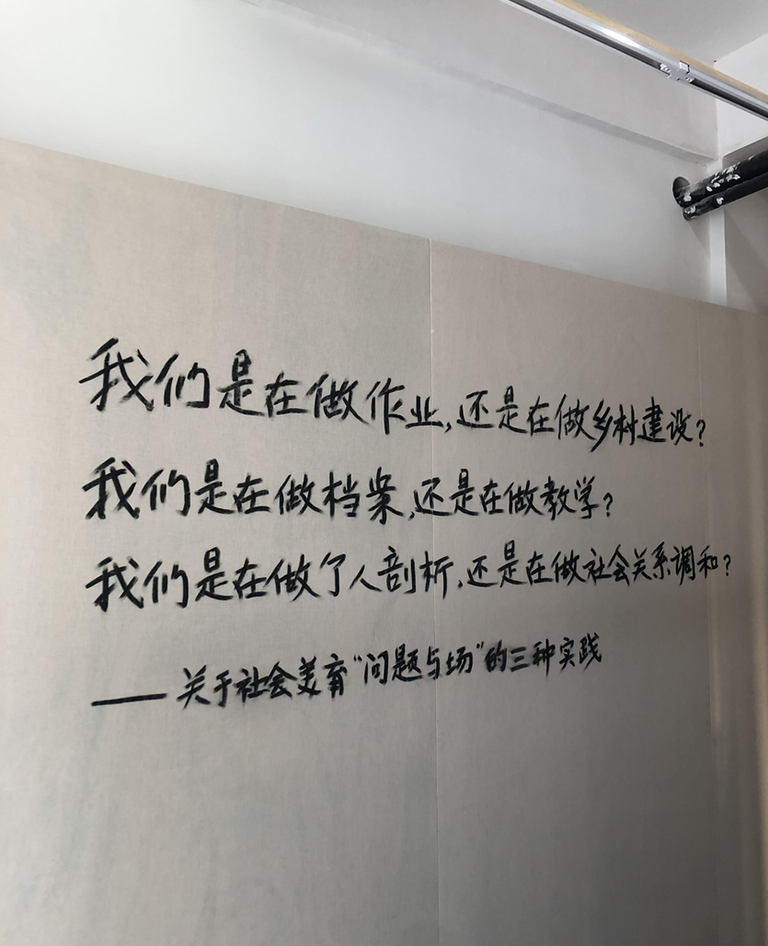 我们是在做作业,还是在做乡村建设?
我们是在做档案,还是在做教学?
我们是在做个人剖析,还是在做社会关系调和?
——关于社会美育“问题与场”的三种实践